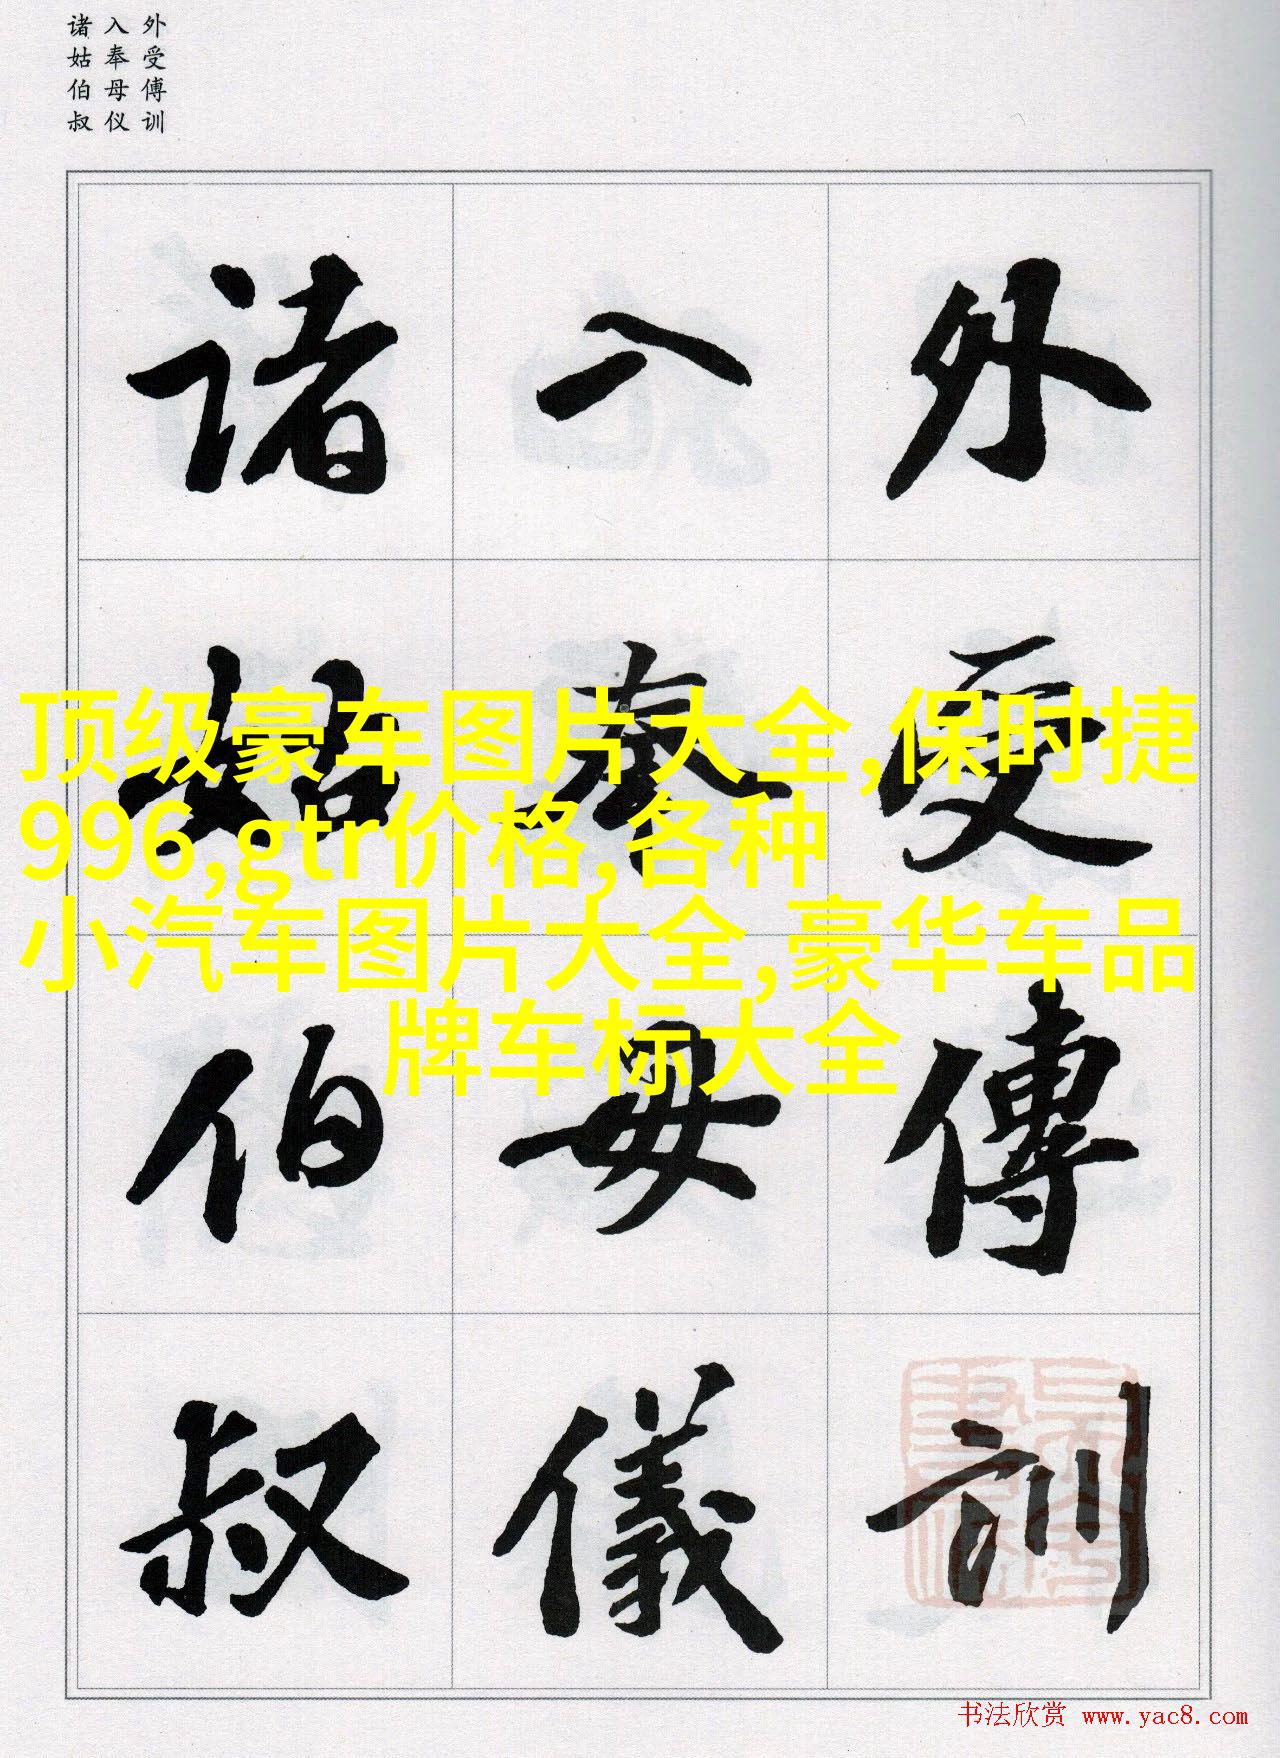 外受傅训
入奉母仪
诸姑伯叔
外受傅訓
入奉母儀
诸姑伯叔
顶级豪车图片大全,保时捷
996,gtr价格,各种
小汽车图片大全,豪华车品
牌车标大全
书法欣赏 www.yac8.com